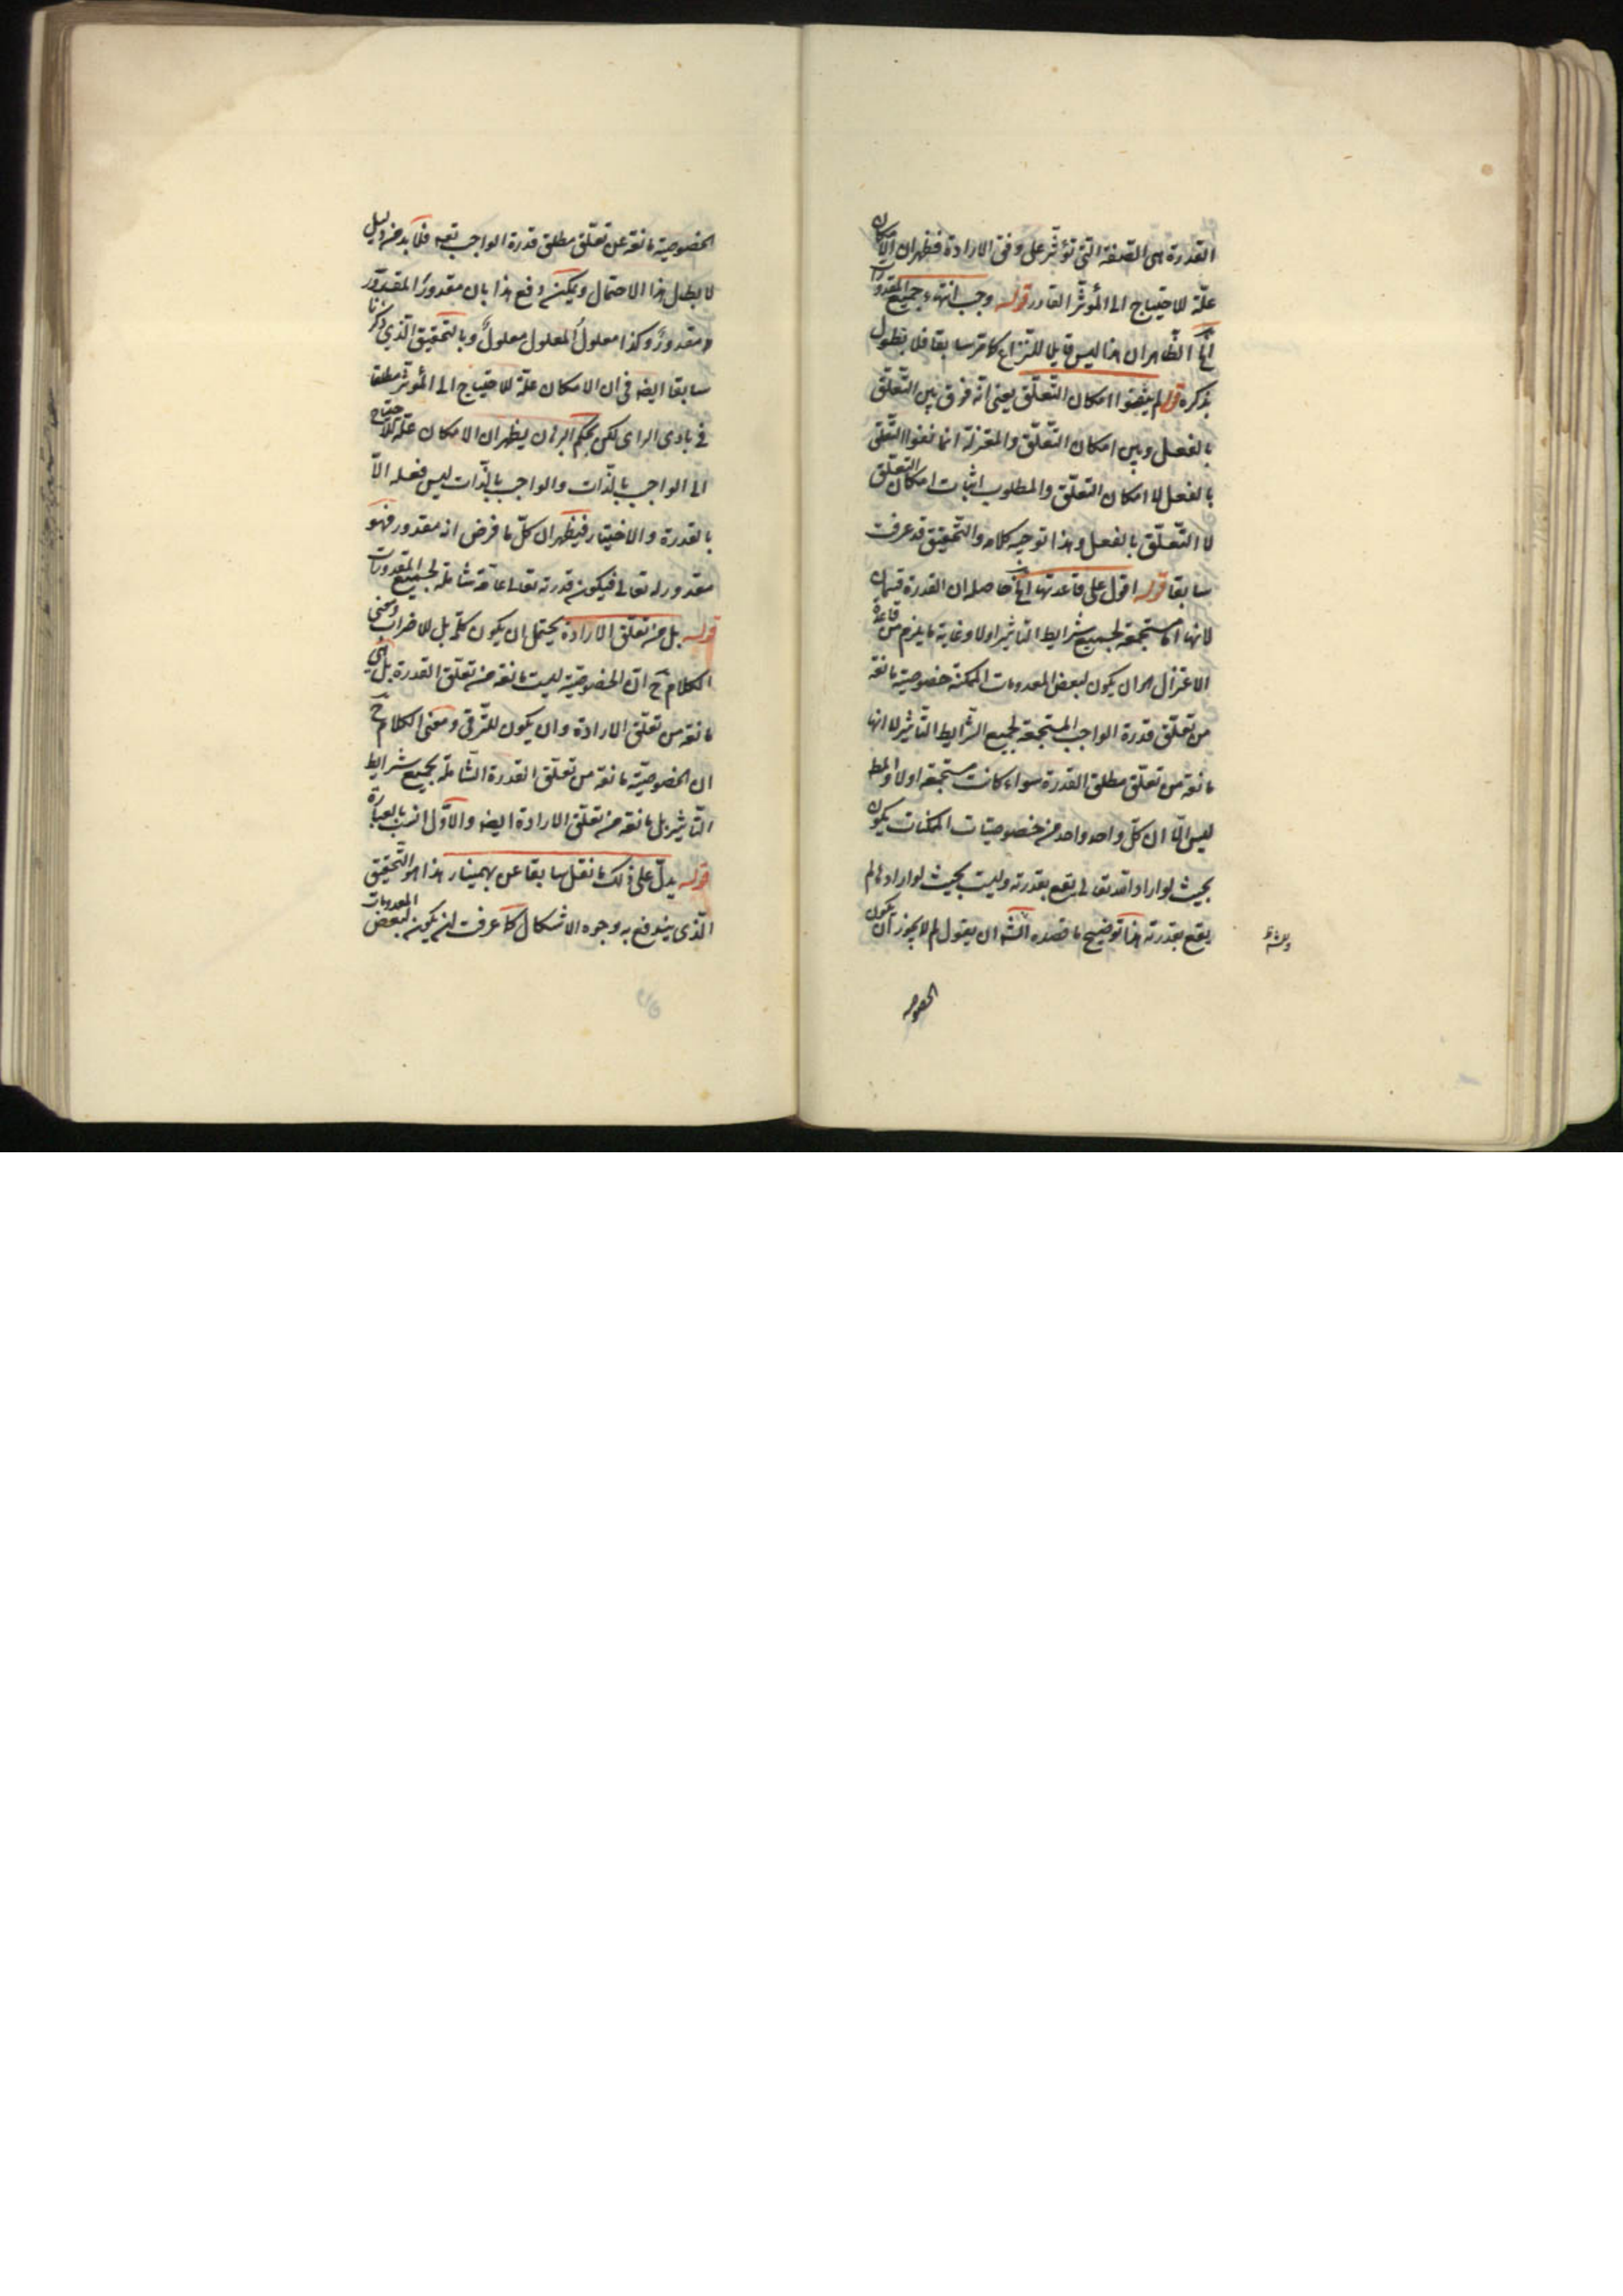 القدرة هى الصفة التى تؤثر على وفق الارادة فظهر ان الامكان
علّة للاحتياج الى المؤثر القادر قوله وجب انتهاء جميع المقدورات
الخ الظاهر ان هذا ليس قابلا للنزاع كما مر سابقا فلا نطول
بذكره قوله لم ينفوا امكان التعلّق يعنى انه فرق بين التعلّق
بالفعل وبين امكان التعلّق والمعتزلة انما نفوا التعلق
بالفعل لا امكان التعلّق والمطلوب اثبات امكان التعلق
لا التعلّق بالفعل وهذا توجيه كلامه والتحقيق قد عرفت
سابقا قوله اقول على قاعدتهم الخ حاصله ان القدرة قسمان
لانها اما مستجمعة لجميع شرايط التاثير اولا وغاية ما يلزم من قاعدة
الاعتزال هو ان يكون لبعض المعدومات الممكنة خصوصية مانعة
من تعلّق قدرة الواجب المستجمعة لجميع الشرايط التاثير لا انها
مانعة من تعلق مطلق القدرة سواء كانت مستجمعة اولا والمط
ليس الا ان كلّ واحد واحد من خصوصيات الممكنات يكون
بحيث لو اراد الله تعالى يقع بقدرته وليست بحيث لو اراد لم
يقع بقدرته هذا توضيح ما قصده الش ان يقول لم لا يجوز ان يكون
الخصوصية
الخصوصية مانعة عن تعلّق مطلق قدرة الواجب تعه فلا بد من دليل
لا بطال هذا الاحتمال ويمكن دفع هذا بان مقدورُ المقدور
مقدورٌ وكذا معلولُ المعلول معلولٌ وبالتحقيق الّذي ذكرنا
سابقا ايضه فى ان الامكان علّة للاحتياج الى المؤثر مطلقا
فى بادى الراى لكن بحكم البرهان يظهر ان الامكان علّة للاحتياج
الى الواجب بالذّات والواجب بالذّات ليس فعله الاّ
بالقدرة والاختيار فيظهر ان كلّ ما فرض انه مقدور فهو
مقدور له تعالى فيكون قدرته تعالى عامّة شاملة لجميع المقدورات
قوله بل من تعلّق الارادة يحتمل ان يكون كلمة بل للاضراب ومعنى
الكلام ح ان الخصوصيّة ليست مانعة من تعلّق القدرة بل هى
مانعة من تعلّق الارادة وان يكون للترقى ومعنى الكلام ح
ان الخصوصيّة مانعة من تعلّق القدرة الشاملة بجميع شرايط
التاثير بل مانعة من تعلّق الارادة ايضه والاوّل انسب بالعبارة
قوله يدلّ على ذلك ما نقل سابقا عن بهمنيار هذا هو التحقيق
الّذى يندفع به وجوه الاشكال كما عرفت لن يكون لبعض المعدومات